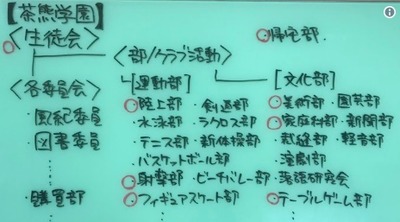 【茶熊学園】
<生徒会>
帰宅部.
<部/クラブ活動>
<各委員会>
[運動部]
[文化部]
・風紀委員
・図書委員
・購買部
・陸上部 ・剣道部
・水泳部 ・ラクロス部
・テニス部 ・新体操部
・バスケットボール部
・射撃部 ・ビーチバレー部
・フィギュアスケート部
・美術部 ・園芸部
・家庭科部 ・新聞部
・裁縫部 ・軽音部
・演劇部
・落語研究会
・テーブルゲーム部